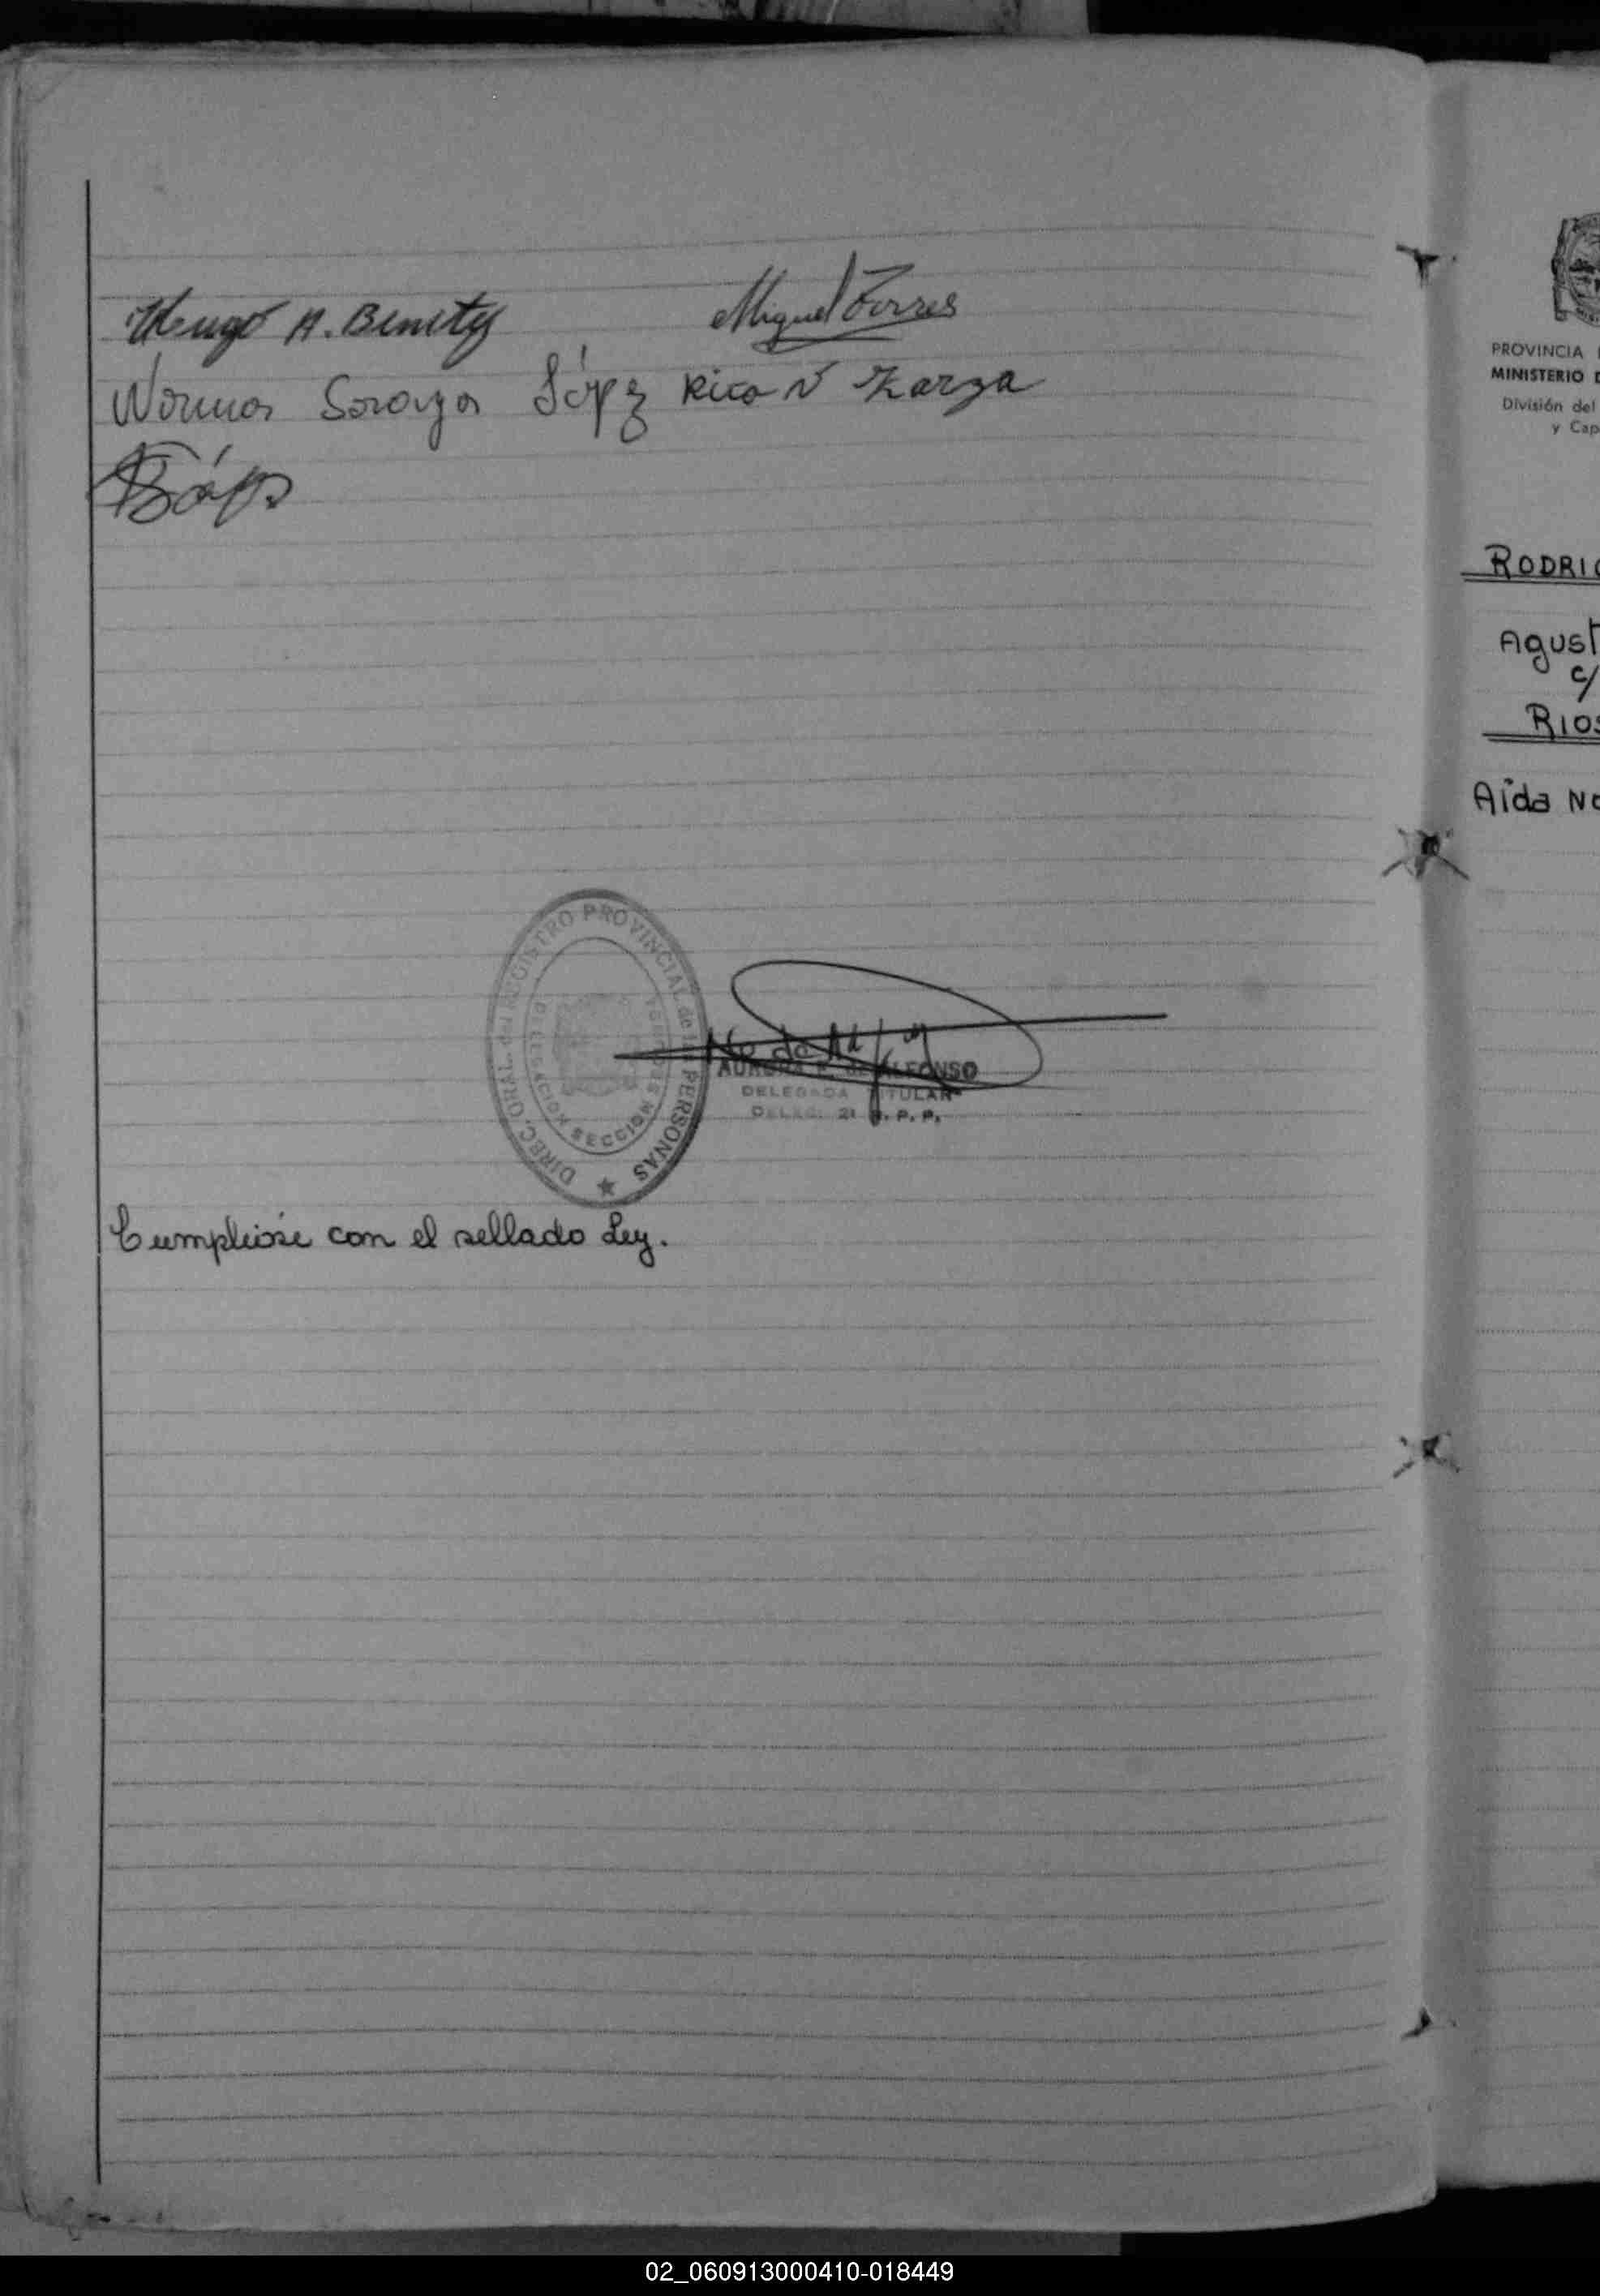 Hugo A. Benitez
Miguel Torres
Norma Soraya López Rica N Zarza
DIREC. GRAL. del REGISTRO PROVINCIAL de las PERSONAS
DELEGACION SECCION
AURORA E. de ALFONSO
DELEGADA TITULAR
DELEG. 21 R. P. P.
Cumplióse con el sellado Ley.
PROVINCIA
MINISTERIO D
División del
y Cap
RODRIG
Agust
c/
RIOS
Aída No
02_060913000410-018449